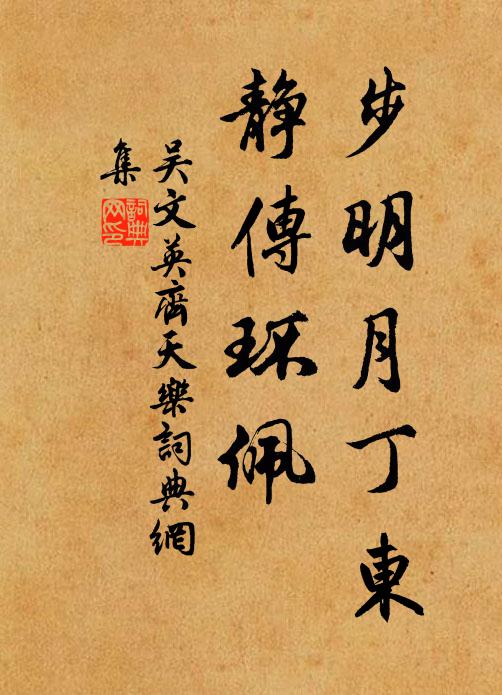 步明月丁東
静傳环佩
吴文英齊天樂詞典網
集
詞典网印